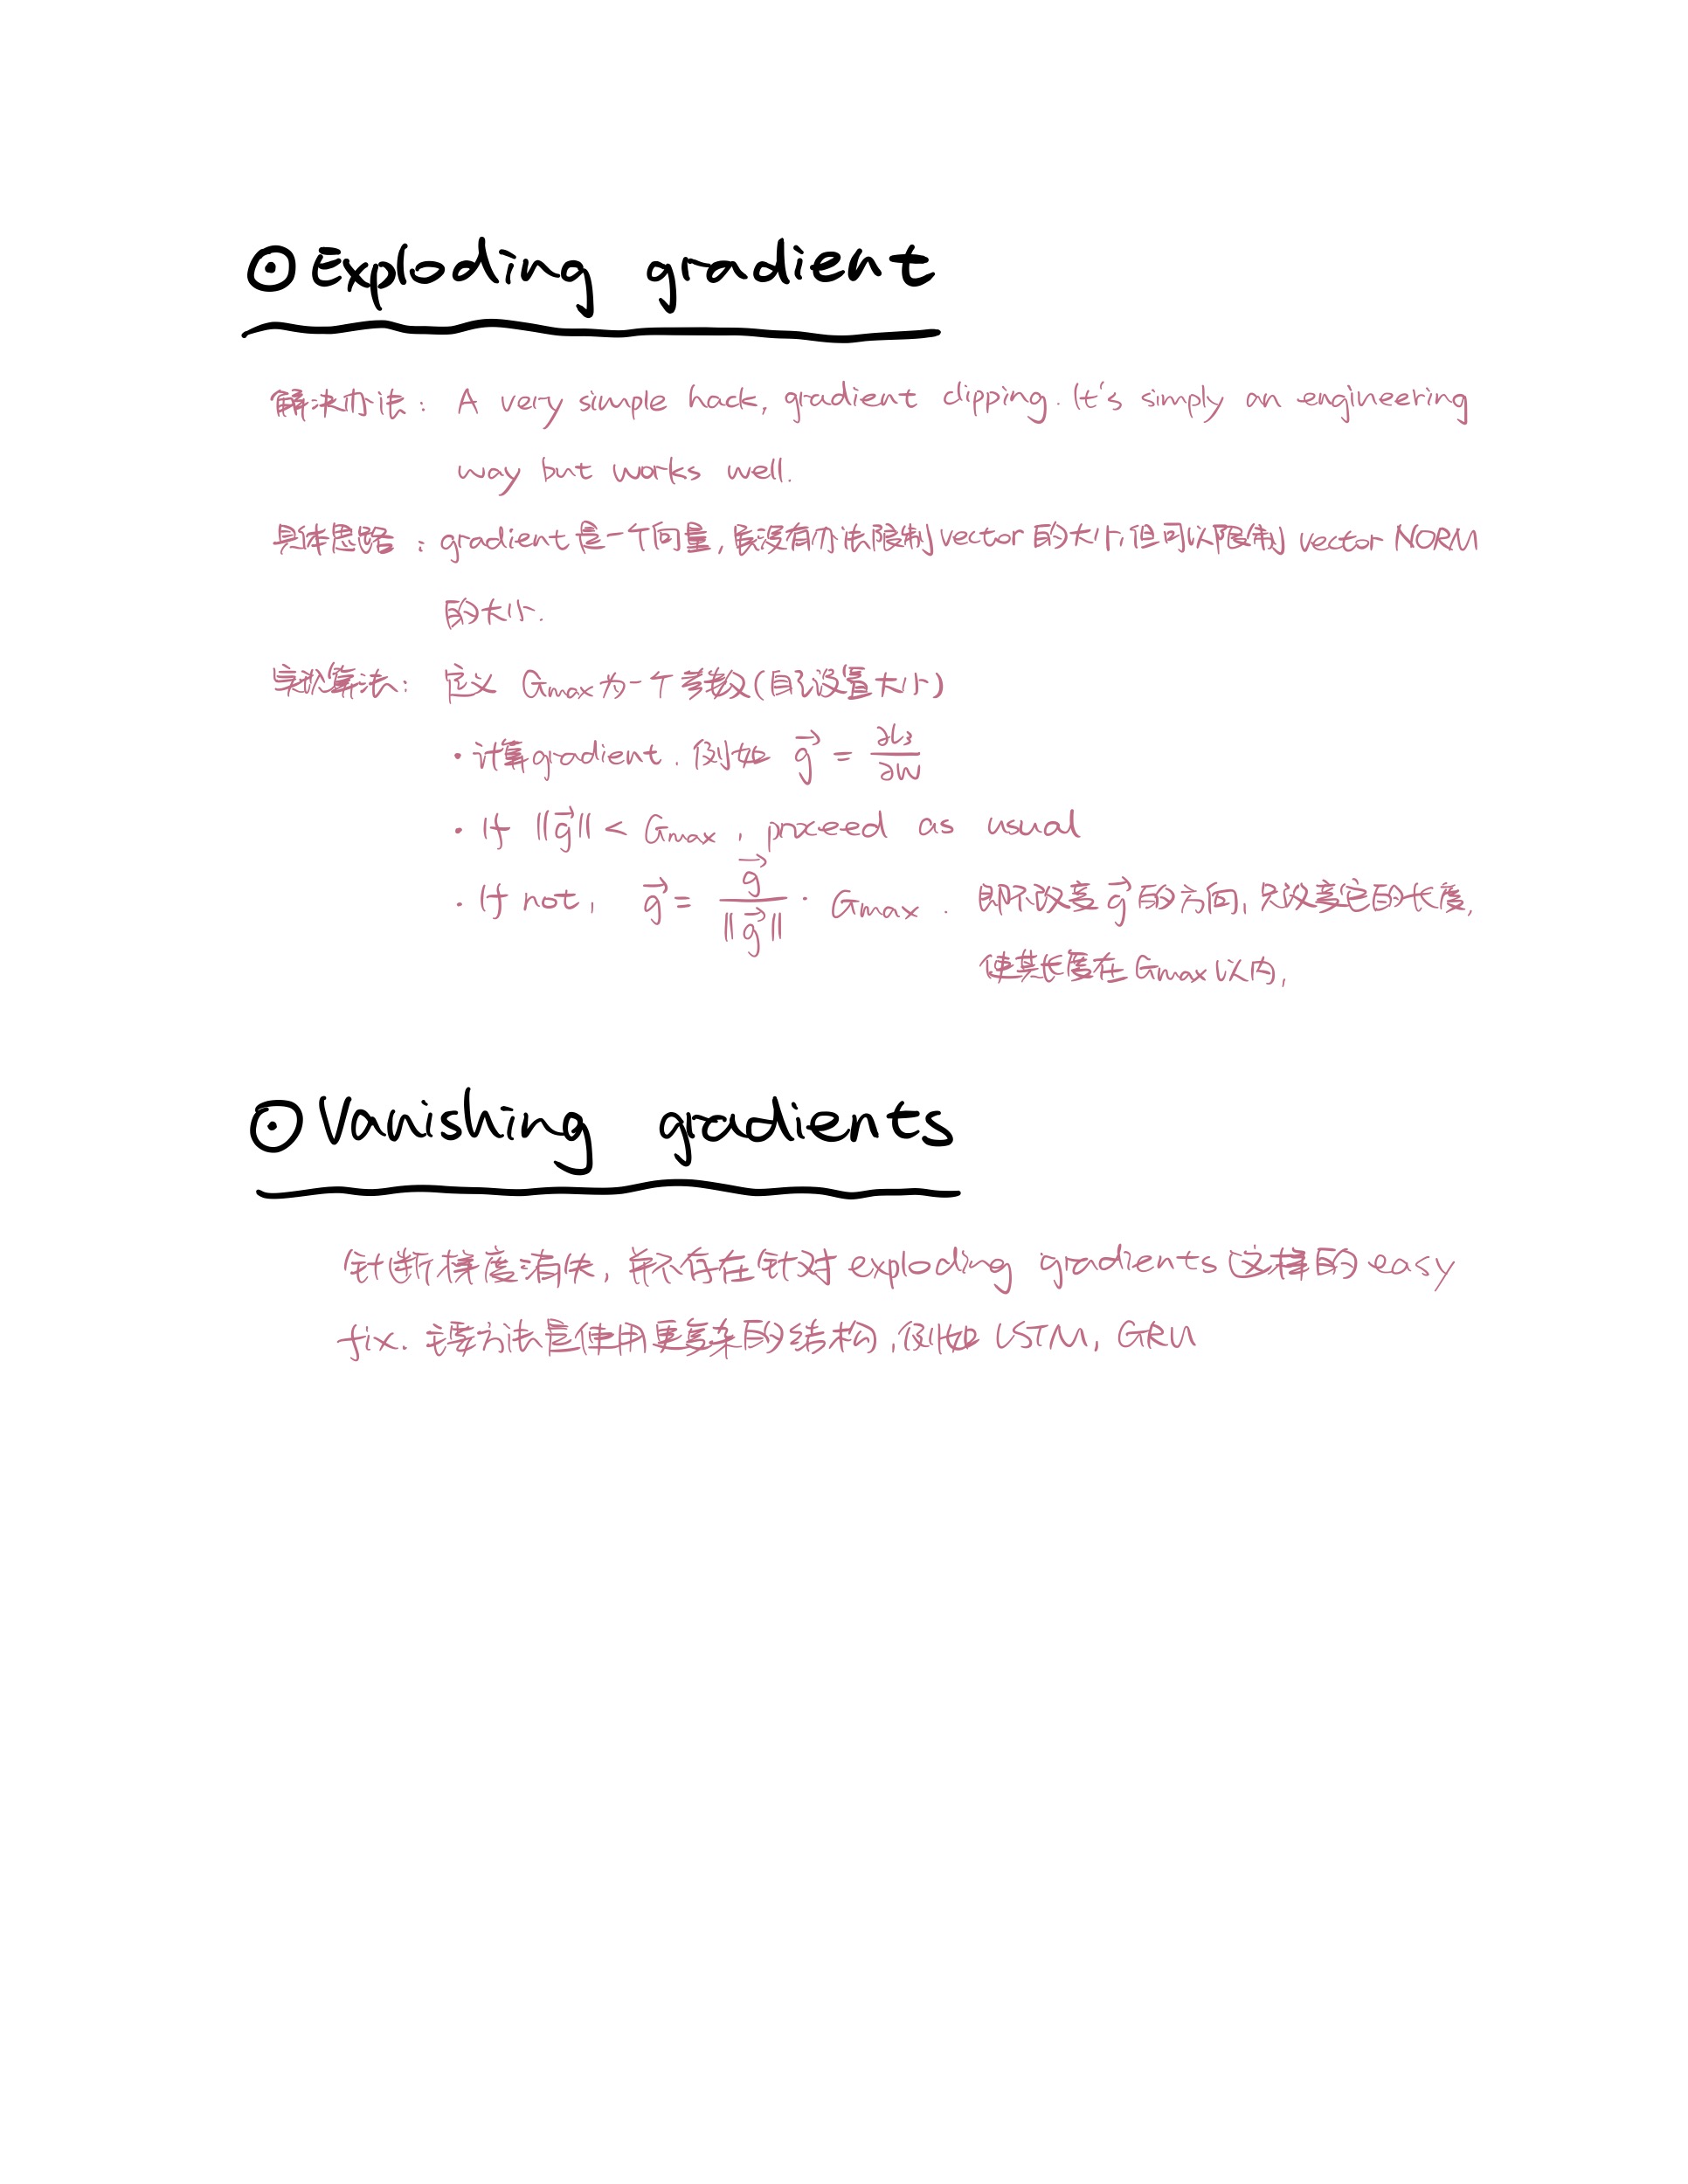 ⊙ Exploding gradient
解决办法: A very simple hack, gradient clipping. It's simply an engineering
way but works well.
具体思路: gradient是一个向量, 虽没有办法限制vector的大小, 但可以限制 vector NORM
的大小.
实现算法: 定义 Gmax为一个参数(自己设置大小)
· 计算gradient. 例如 \vec{g} = \frac{∂L_3}{∂W}
· If ||\vec{g}|| < Gmax, proceed as usual
· If not, \vec{g} = \frac{\vec{g}}{||\vec{g}||} · Gmax. 即不改变\vec{g}的方向, 只改变它的长度,
使其长度在Gmax以内,
⊙ Vanishing gradients
针断梯度消失, 并不存在针对exploding gradients这样的easy
fix. 主要方法是使用更复杂的结构, 例如 LSTM, GRU